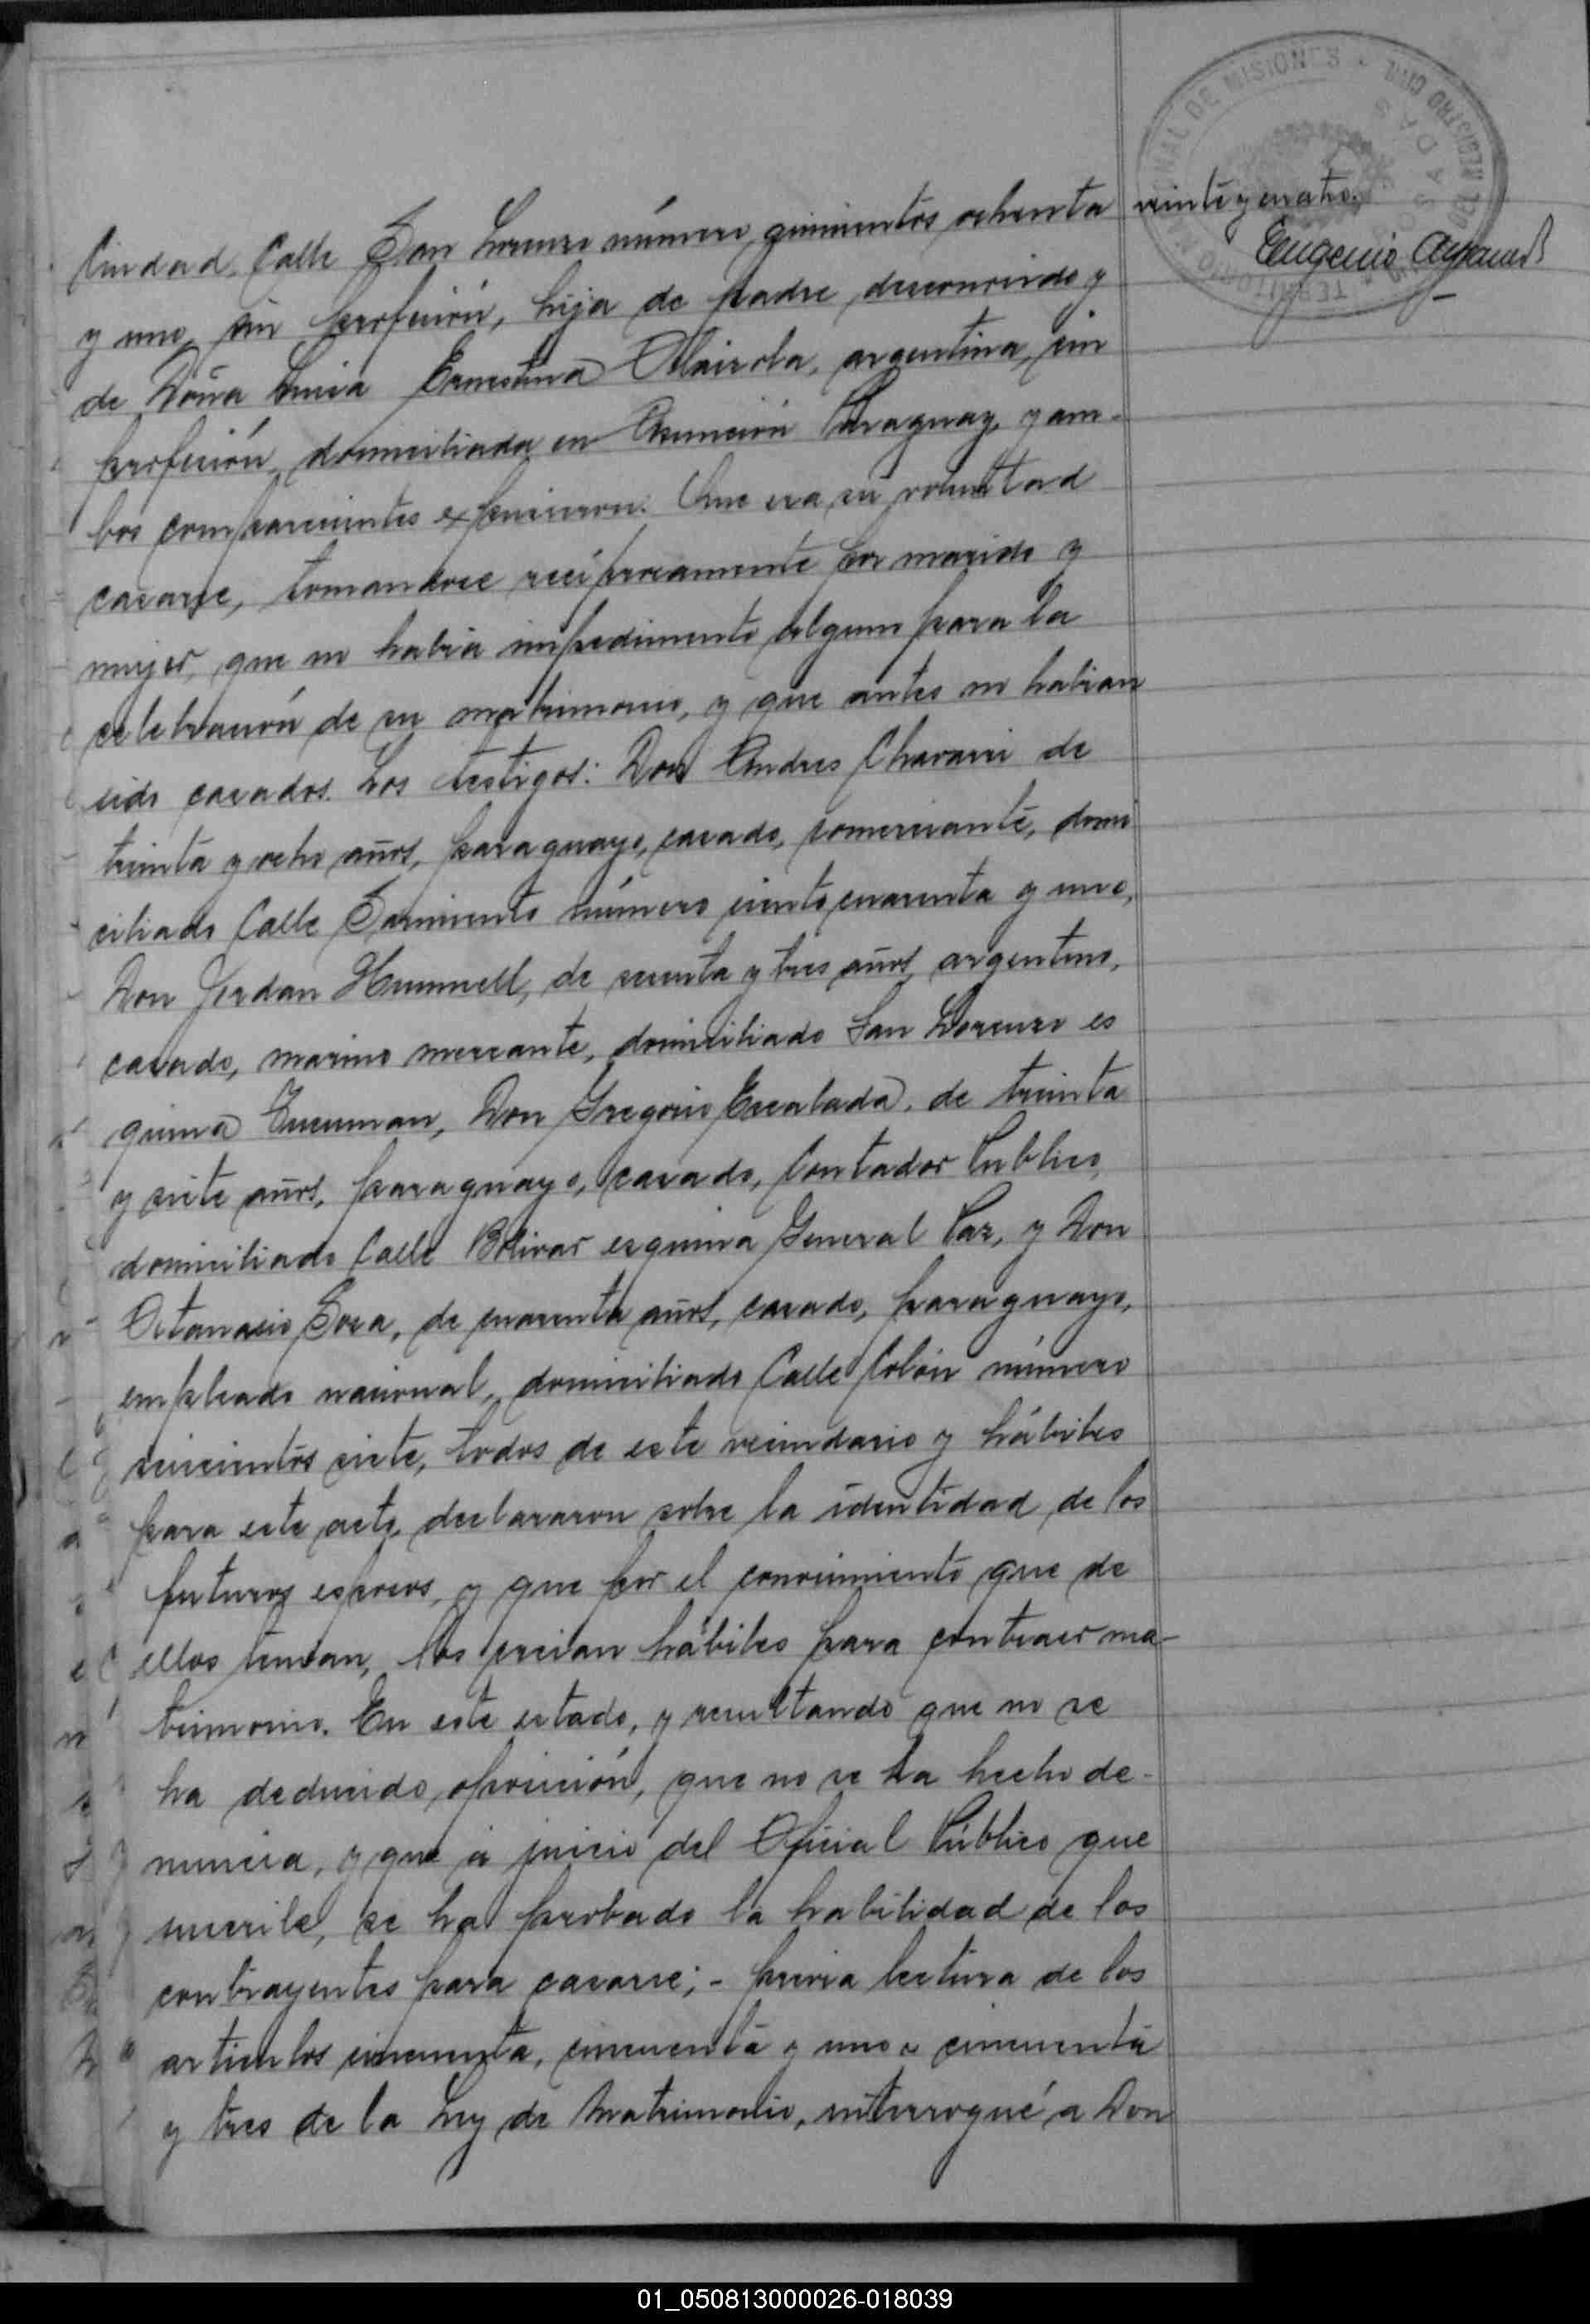 veinte y cuatro.
Eugenio
TERRITORIO NACIONAL DE MISIONES
REGISTRO CIVIL
POSADAS
Ciudad, Calle San Lorenzo número quinientos ochenta
y uno, sin profesión, hija de padre desconocido y
de Doña Lucia Ernestina argentina, sin
profesión, domiciliada en Asunción Paraguay, y am-
bos comparecientes expusieron: Que era su voluntad
casarse, tomandose recíprocamente por marido y
mujer, que no habia impedimento alguno para la
celebración de su matrimonio, y que antes no habian
sido casados. Los testigos: Don Andres de
treinta y ocho años, paraguayo, casado, comerciante, domi
ciliado Calle Sarmiento número ciento cuarenta y uno,
Don Jordan Hummell, de sesenta y tres años, argentino,
casado, marino mercante, domiciliado San Lorenzo es
quina Tucuman, Don Gregorio Escalada, de treinta
y siete años, paraguayo, casado, Contador Publico,
domiciliado Calle Bolivar esquina General Paz, y Don
Atanacio Sosa, de cuarenta años, casado, paraguayo,
empleado nacional, domiciliado Calle Colón número
seiscientos siete, todos de este vecindario y hábiles
para este acto, declararon sobre la identidad de los
futuros esposos, y que por el conocimiento que de
ellos tenian, los creian hábiles para contraer ma-
trimonio. En este estado, y resultando que no se
ha deducido oposición, que no se ha hecho de-
nuncia, y que á juicio del Oficial Público que
suscribe, se ha probado la habilidad de los
contrayentes para casarse; - previa lectura de los
articulos cincuenta, cincuenta y uno y cincuenta
y tres de la Ley de Matrimonio, interrogué a Don
01_050813000026-018039